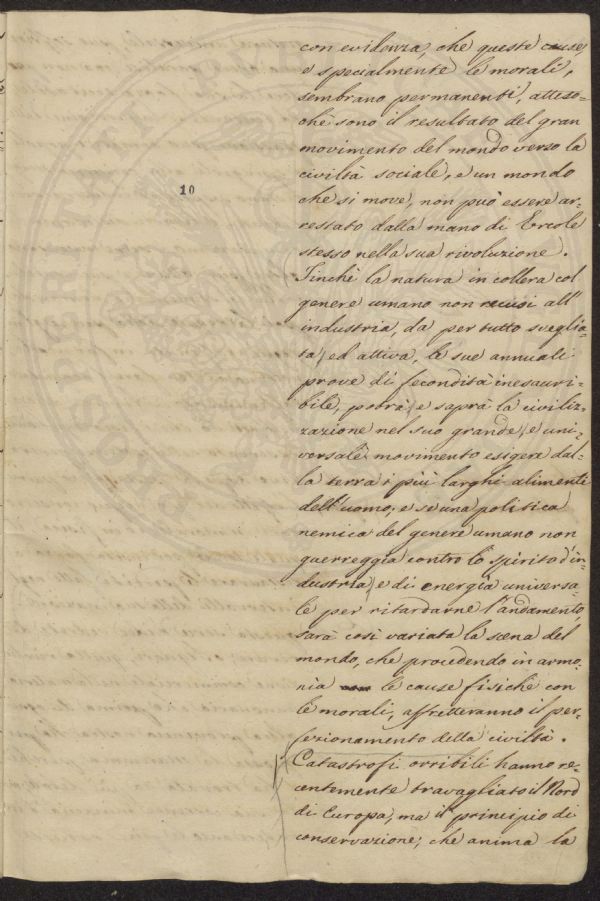 10
con evidenza, che queste cause,
e specialmente le morali,
sembrano permanenti, atteso-
chè sono il resultato del gran
movimento del mondo verso la
civiltà sociale, e un mondo
che si move, non può essere ar-
restato dalla mano di Ercole
stesso nella sua rivoluzione.
Finchè la natura in collera col
genere umano non recusi all'
industria, da per tutto sveglia-
ta, ed attiva, le sue annuali
prove di fecondità inesauri-
bile, potrà, e saprà la civiliz-
zazione nel suo grande, e uni-
versale movimento esigere dal-
la terra i più larghi alimenti
dell'uomo, e se una politica
nemica del genere umano non
guerreggia contro lo spirito d'in-
dustria, e di energia universa-
le per ritardarne l'andamento,
sarà così variata la scena del
mondo, che procedendo in armo-
nia le cause fisiche con
le morali, affretteranno il per-
fezionamento della civiltà.
Catastrofi orribili hanno re-
centemente travagliato il Nord
di Europa, ma il principio di
conservazione, che anima la